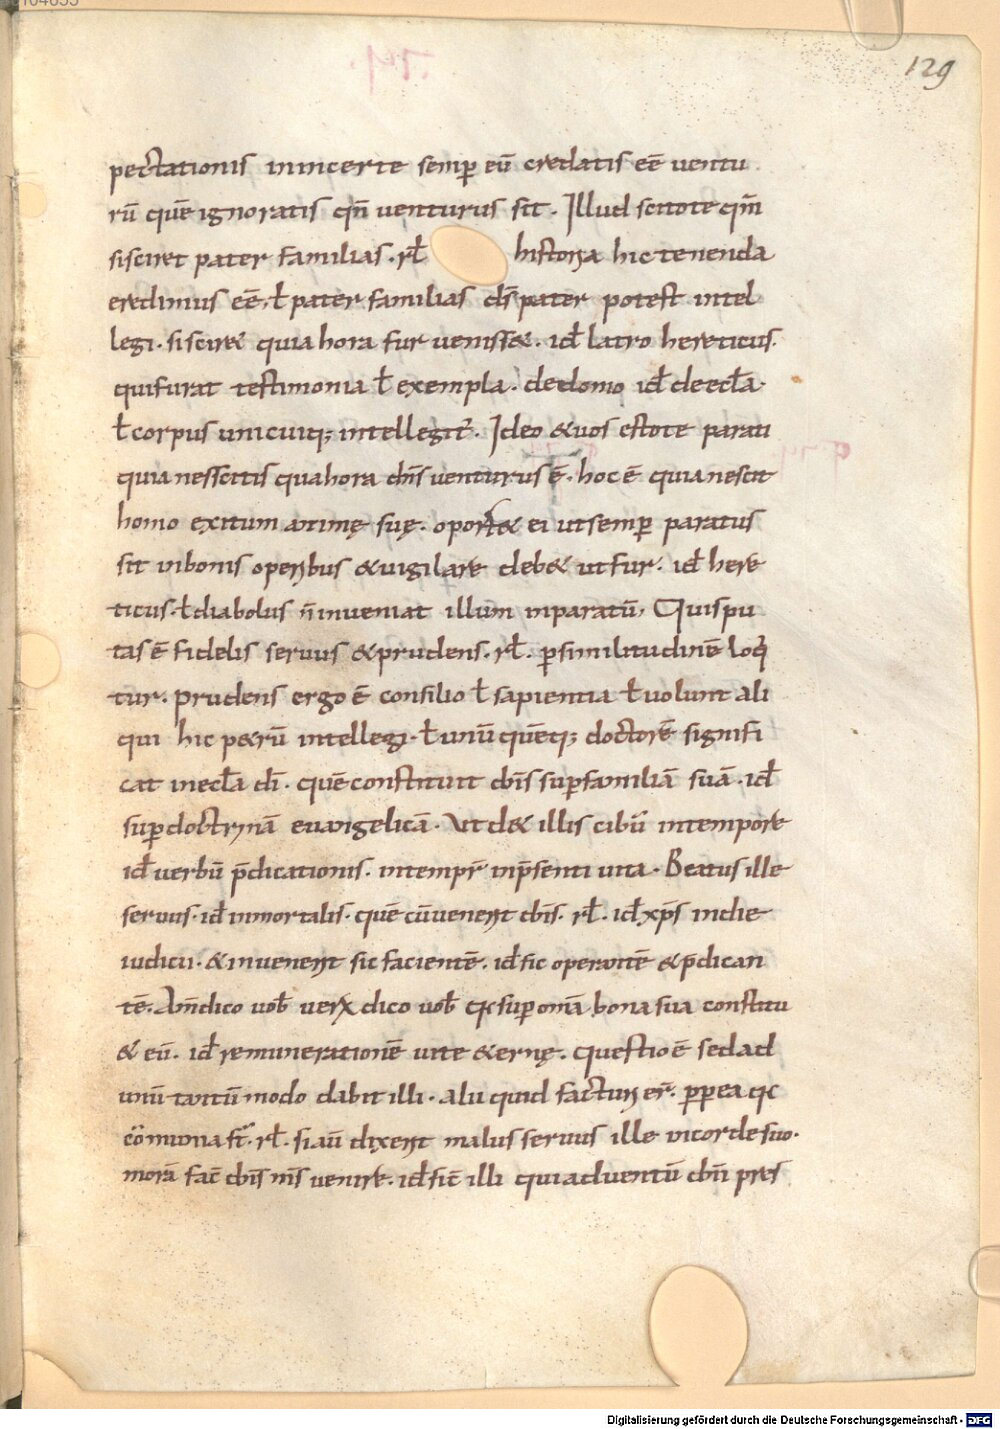 129
pectationis inincerte semp̄ eū credatis eē ventu
rū quē ignoratis qn̄ venturus sit. Illud scitote qm̄
si sciret pater familias. rł historia hic tenenda
credimus eē; ł pater familias ds̄ pater potest intel
legi. si scir& quia hora fur veniss&. id̄ latro hereticus.
qui furat testimonia ł exempla. de domo id̄ de eccła.
ł corpus unicuiq; intellegit̄. Ideo & vos estote parati
quia nesscitis qua hora dn̄s venturus ē. hoc ē quia nescit
homo exitum animę suę. oport& ei ut semp̄ paratus
sit in bonis operibus & vigilare deb& ut fur. id̄ here
ticus. ł diabolus n̄ inveniat illum inparatū, Quis pu
tas ē fidelis servus & prudens. rł. p̄ similitudinē loqi
tur. prudens ergo ē consilio ł sapientia ł volunt ali
qui hic p&rū intellegi. ł unū quēq; doctorē signifi
cat in eccła dī. quē constituit dn̄s sup̄ familiā suā. id̄
sup̄ doctrinā euangelicā. Ut d& illis cibū in tempore
id̄ verbū p̄dicationis. in tempr̄ in p̄senti vita. Beatus ille
servus. id̄ inmortalis. quē cū venerit dn̄s. rł. id̄ xp̄s in die
iudicii. & invenerit sic facientē. id̄ sic operantē & p̄dican
tē. Am̄ dico vob̄ vere dico vob̄ qc sup̄ omā bona sua constitu
& eū. id̄ remunerationē vite & ernę. Questio ē sed ad
unū tantū modo dabit illi. alii quid facturi er̄. p̄p ea qc
cōmunia st̄. rł. si aū dixerit malus servus ille in corde suo.
morā fac̄ dn̄s m̄s venire. id̄ sic̄ illi qui adventū dn̄i pres
Digitalisierung gefördert durch die Deutsche Forschungsgemeinschaft - DFG